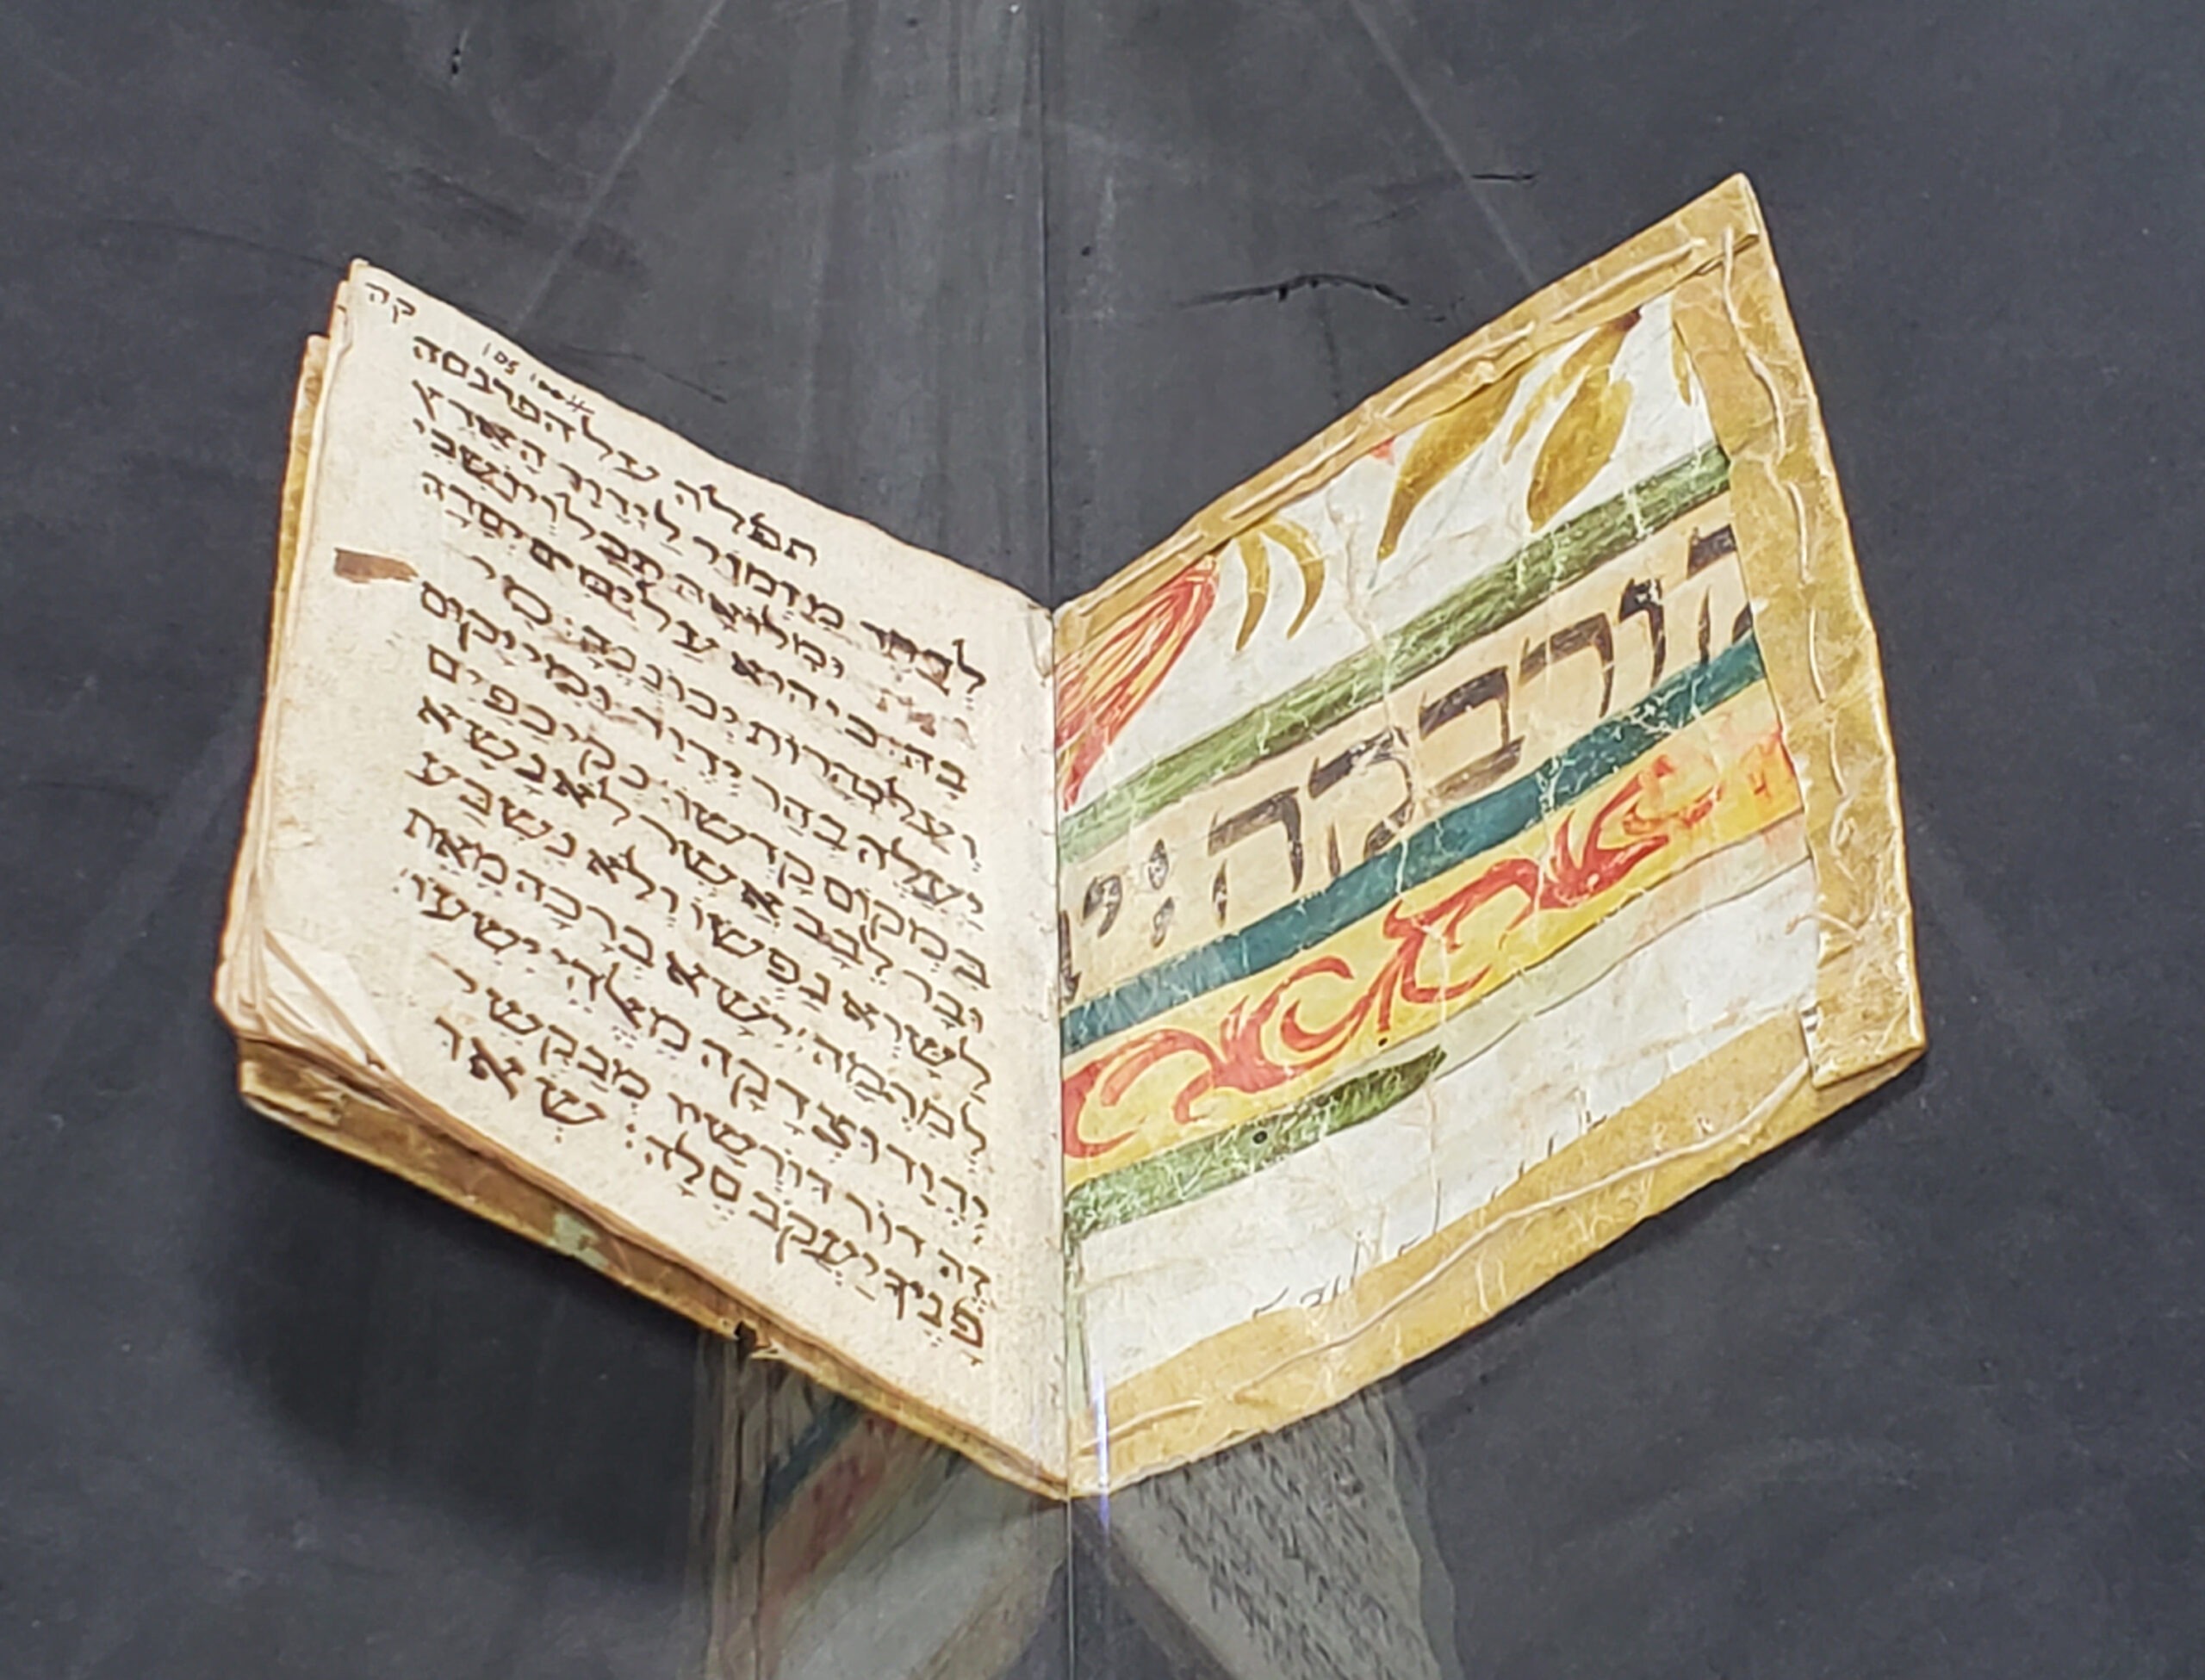 קה
105
תפלה על הפרנסה
לְדָוִד מִזְמוֹר לַיְיָ הָאָרֶץ
וּמְלוֹאָהּ תֵּבֵל וְיוֹשְׁבֵי
בָהּ: כִּי הוּא עַל יַמִּים יְסָדָהּ
וְעַל נְהָרוֹת יְכוֹנְנֶהָ: מִי
יַעֲלֶה בְהַר יְיָ וּמִי יָקוּם
בִּמְקוֹם קָדְשׁוֹ: נְקִי כַפַּיִם
וּבַר לֵבָב אֲשֶׁר לֹא נָשָׂא
לַשָּׁוְא נַפְשׁוֹ וְלֹא נִשְׁבַּע
לְמִרְמָה: יִשָּׂא בְרָכָה מֵאֵת
יְיָ וּצְדָקָה מֵאֱלֹהֵי יִשְׁעוֹ:
זֶה דּוֹר דּוֹרְשָׁיו מְבַקְשֵׁי
פָנֶיךָ יַעֲקֹב סֶלָה: שְׂאוּ
ורבקה: